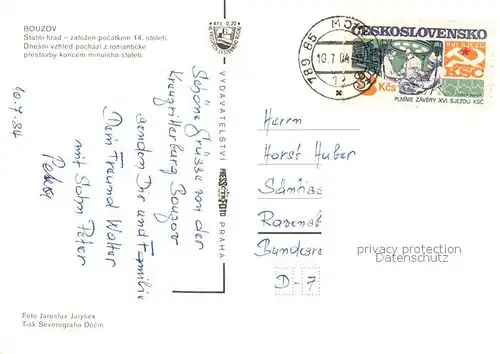 BOUZOV
Státní hrad - založen počátkem 14. století.
Dnešní vzhled pochází z romantické
přestavby koncem minulého století.
Kčs 0,20
10.7.84
Schöne Grüsse von der
Kreuzritterburg Bouzov
senden Dir und Familie
Dein Freund Walter
mit Sohn Peter
VYDAVATELSTVÍ
PRESSFOTO
PRAHA
789 85
10.7.84
ČESKOSLOVENSKO
XVI.SJEZD
KSČ
3 Kčs
PLNÍME ZÁVĚRY XVI. SJEZDU KSČ
Herrn
Horst Huber
Bundesre
D-7
privacy protection
Datenschutz
Foto Jaroslav Juryšek
Tisk Severografia Děčín